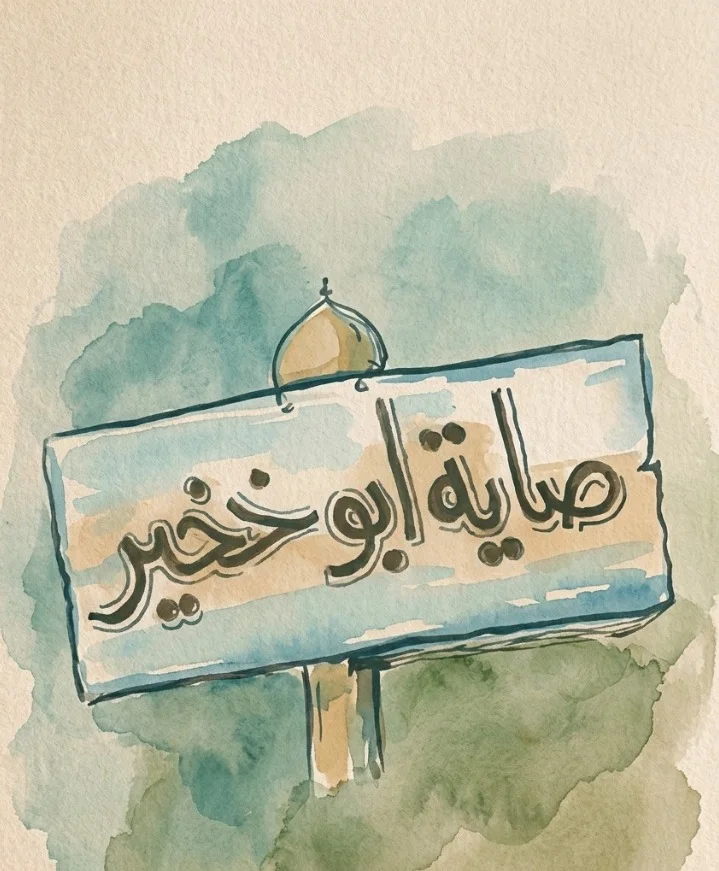 صاية ابو خخير